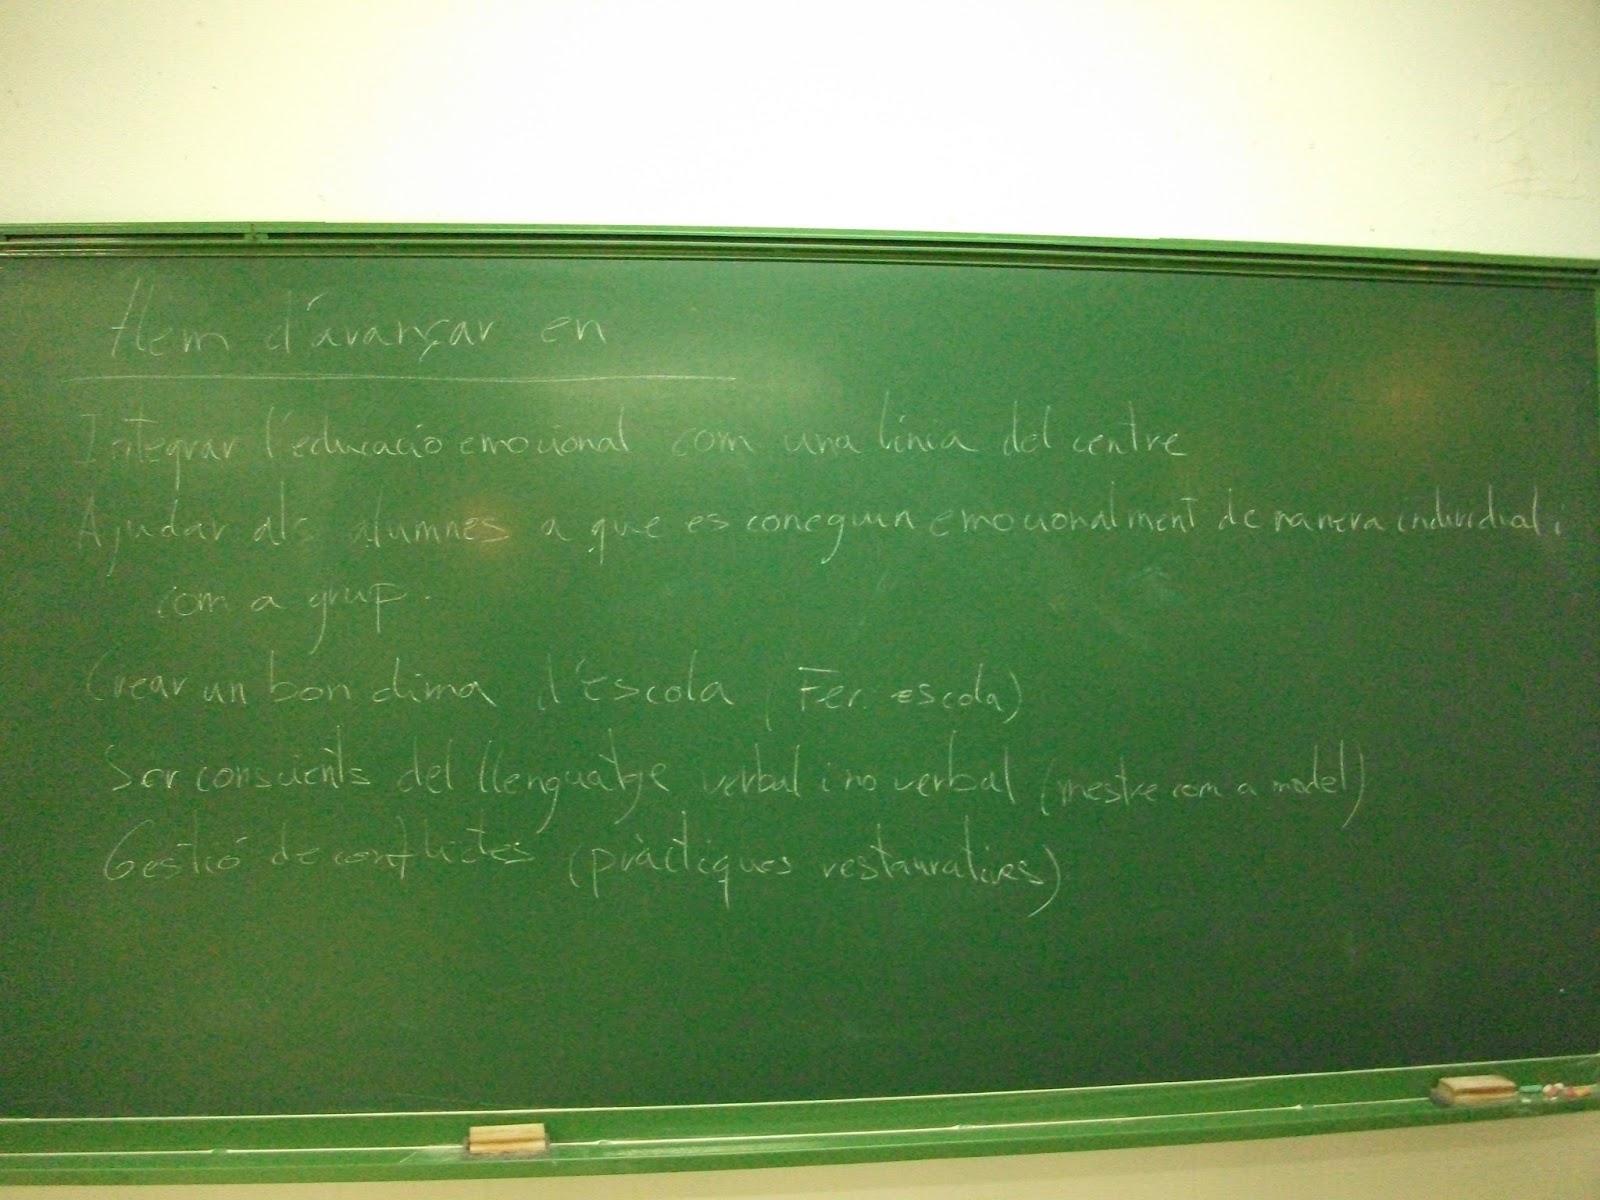 Hem d'avançar en
Integrar l'educació emocional com una línia del centre
Ajudar als alumnes a que es coneguin emocionalment de manera individual i
com a grup.
Crear un bon clima d'Escola (Fer escola)
Ser conscients del llenguatge verbal i no verbal (mestre com a model)
Gestió de conflictes (pràctiques restauratives)